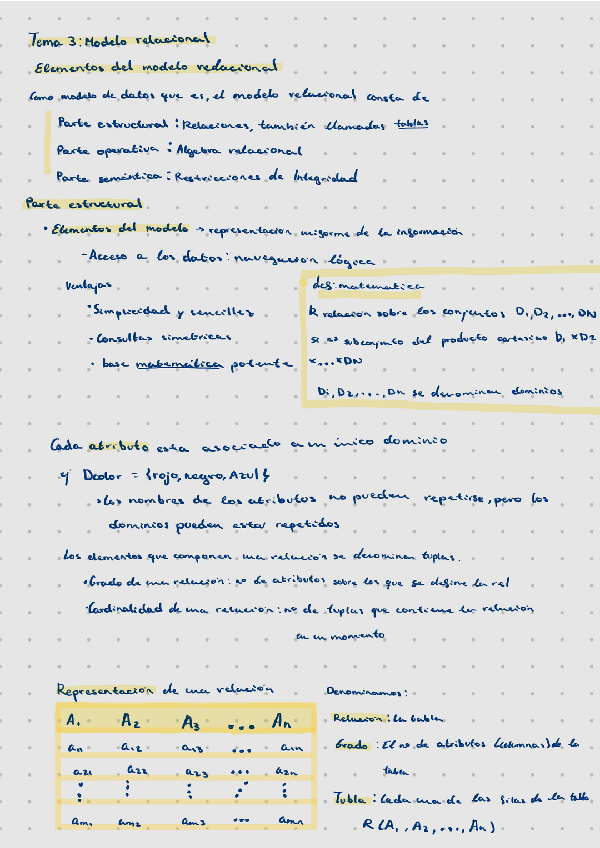 Tema 3: Modelo relacional
Elementos del modelo relacional
Como modelo de datos que es, el modelo relacional consta de
Parte estructural: Relaciones, también llamadas tablas
Parte operativa: Algebra relacional
Parte semántica: Restricciones de Integridad
Parte estructural
• Elementos del modelo → representacion uniforme de la información
- Acceso a los datos: navegación lógica
Ventajas
• Simplicidad y sencillez
• Consultas simetricas
• base matemática potente
def: matematica
R relación sobre los conjuntos D1, D2, ..., DN
si es subconjunto del producto cartesiano D1 × D2
× ... × DN
D1, D2, ..., Dn se denominan dominios
Cada atributo esta asociado a un único dominio
ej Dcolor = {rojo, negro, Azul}
• Los nombres de los atributos no pueden repetirse, pero los
dominios pueden estar repetidos
Los elementos que componen una relación se denominan tuplas.
• Grado de una relación: no de atributos sobre los que se define la rel
• Cardinalidad de una relación: no de tuplas que contiene la relación
en un momento
Representación de una relación
A1 A2 A3 ... An
a11 a12 a13 ... a1n
a21 a22 a23 ... a2n
am1 am2 am3 ... amn
Denominamos:
Relación: La tabla
Grado: El no de atributos (columnas) de la
tabla
Tupla: Cada una de las filas de la tabla
R (A1, A2, ..., An)